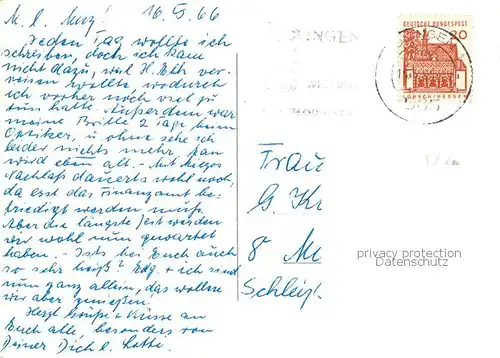 M. l. Muzz! 16.5.66
Jeden Tag wollte ich
schreiben, doch ich kam
nicht dazu, weil H. Ehr ver-
reisen wollte, wodurch
ich vorher noch viel zu
tun hatte. Außerdem war
meine Brille 2 Tage beim
Optiker, u. ohne sehe ich
leider nichts mehr. Man
wird eben alt. - Mit
Nachlaß dauerts wohl noch,
da erst das Finanzamt be-
friedigt werden muß.
Aber die längste Zeit werden
wir wohl nun gewartet
haben. - Ists bei Euch auch
so sehr heiß? Edg. + ich sind
nun ganz allein, das wollen
wir aber genießen!
Herzl. Grüße + Küsse an
Euch alle, besonders von
Deiner Dich l. Lotti.
DEUTSCHE BUNDESPOST
20
LORSCH/HESSEN
Frau
G. Kr
8 M
Schleiß
privacy protection
Datenschutz